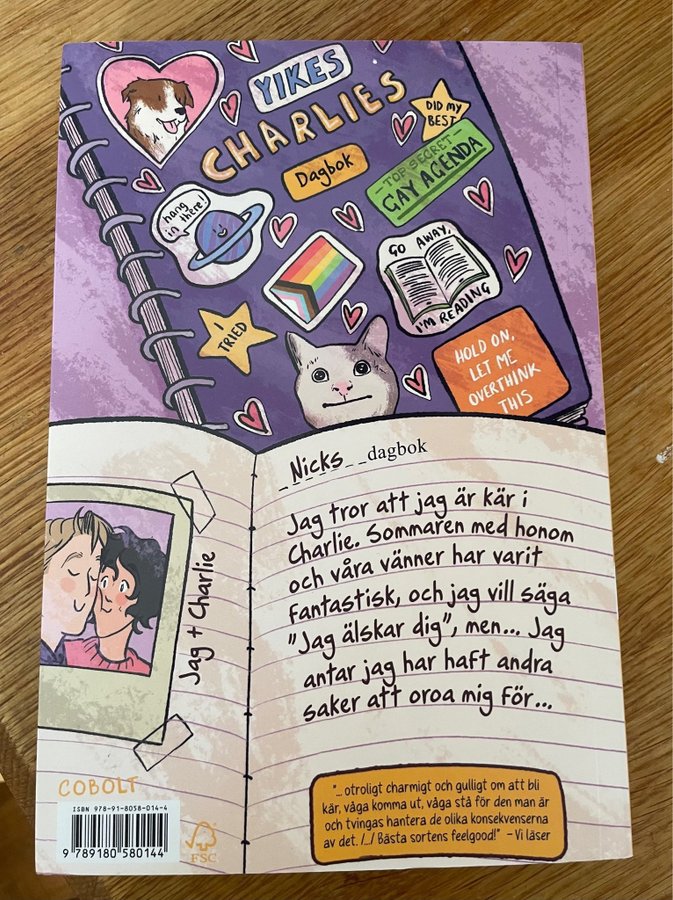 YIKES
CHARLIES
Dagbok
DID MY
BEST
-TOP SECRET-
GAY AGENDA
hang
in there!
GO AWAY,
I'M READING
I
TRIED
HOLD ON,
LET ME
OVERTHINK
THIS
_Nicks_ _dagbok
Jag tror att jag är kär i
Charlie. Sommaren med honom
och våra vänner har varit
fantastisk, och jag vill säga
"Jag älskar dig", men... Jag
antar jag har haft andra
saker att oroa mig för...
Jag + Charlie
COBOLT
ISBN 978-91-8058-014-4
9 789180 580144
FSC
"... otroligt charmigt och gulligt om att bli
kär, våga komma ut, våga stå för den man är
och tvingas hantera de olika konsekvenserna
av det. /.../ Bästa sortens feelgood!" – Vi läser